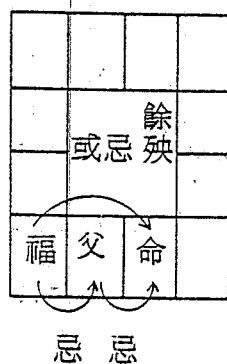 餘殃
或忌
福 父 命
忌 忌